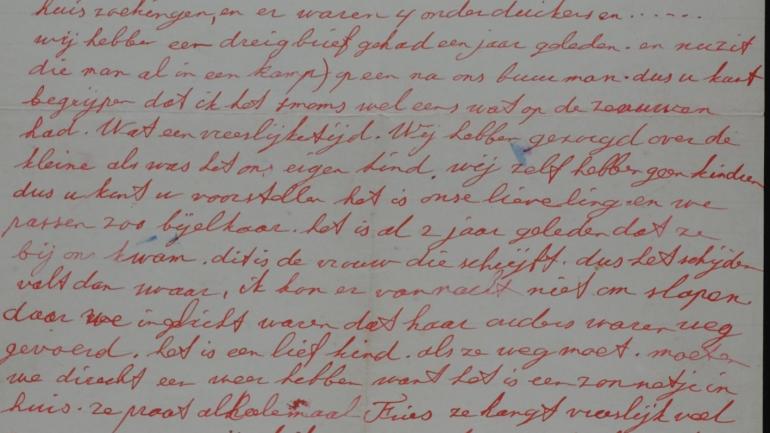 huis zoekingen, en er waren 4 onderduickers en ......
wij hebben een dreigbrief gehad een jaar geleden. en nu zit
die man al in een kamp) op een na ons buurman. dus u kunt
begrijpen dat ik het smoms wel eens wat op de zenuwen
had. Wat een vreeslijke tijd. Wij hebben gezorgd over de
kleine als was het ons eigen kind. wij zelf hebben geen kinderen
dus u kunt u voorstellen het is onse lieveling. en we
passen zoo bijelkaar. het is al 2 jaar geleden dat ze
bij ons kwam. dit is de vrouw die schrijft. dus het schijden
valt dan zwaar, ik kon er vannacht niet om slapen
daar we ingelicht waren dat haar ouders waren weg
gevoerd. het is een lief kind. als ze weg moet. moeten
we direckt een weer hebben want het is een zonnetje in
huis. ze praat alheelemaal Fries ze hangt vreeslijk veel